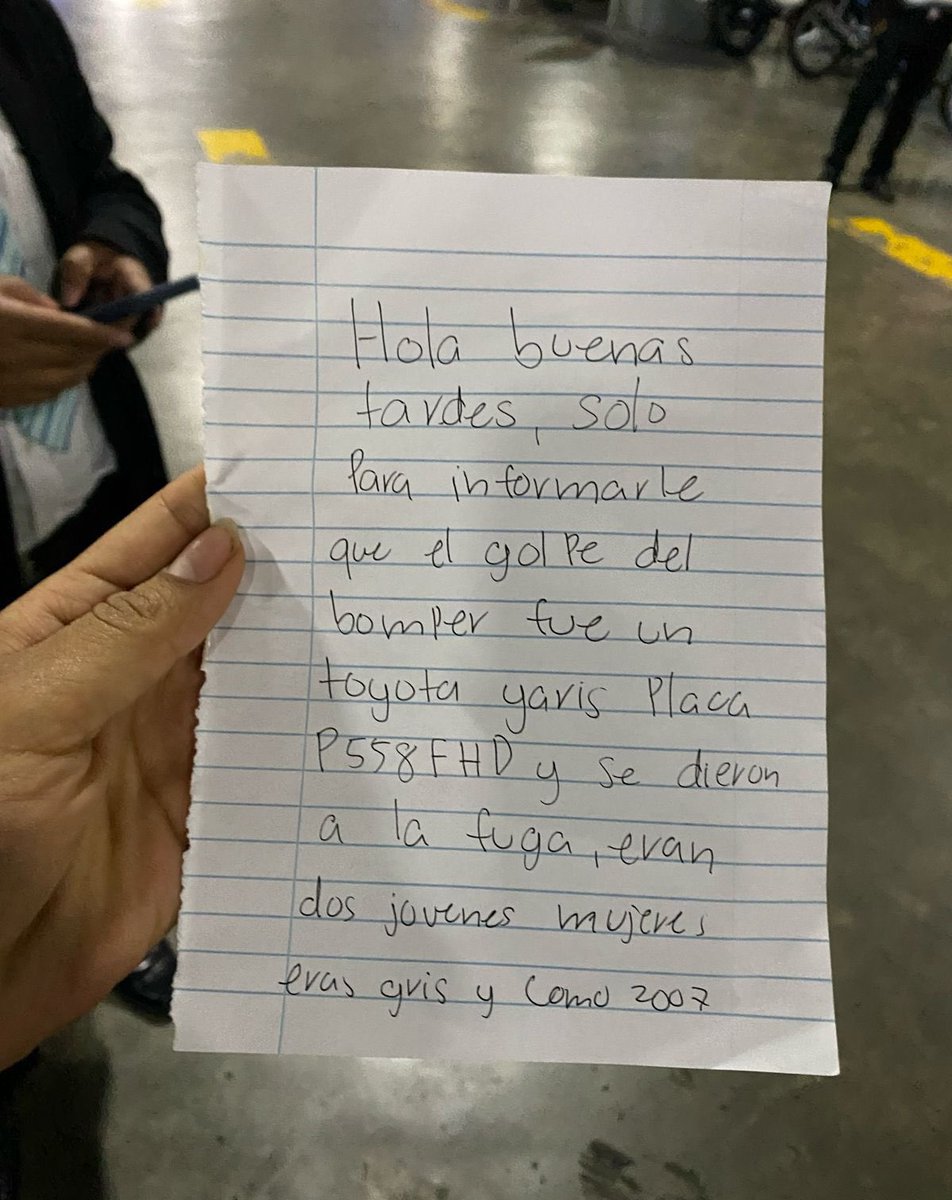 Hola buenas
tardes, solo
Para informarle
que el golpe del
bomper fue un
toyota yaris Placa
P558FHD y se dieron
a la fuga, eran
dos jovenes mujeres
eras gris y Como 2007